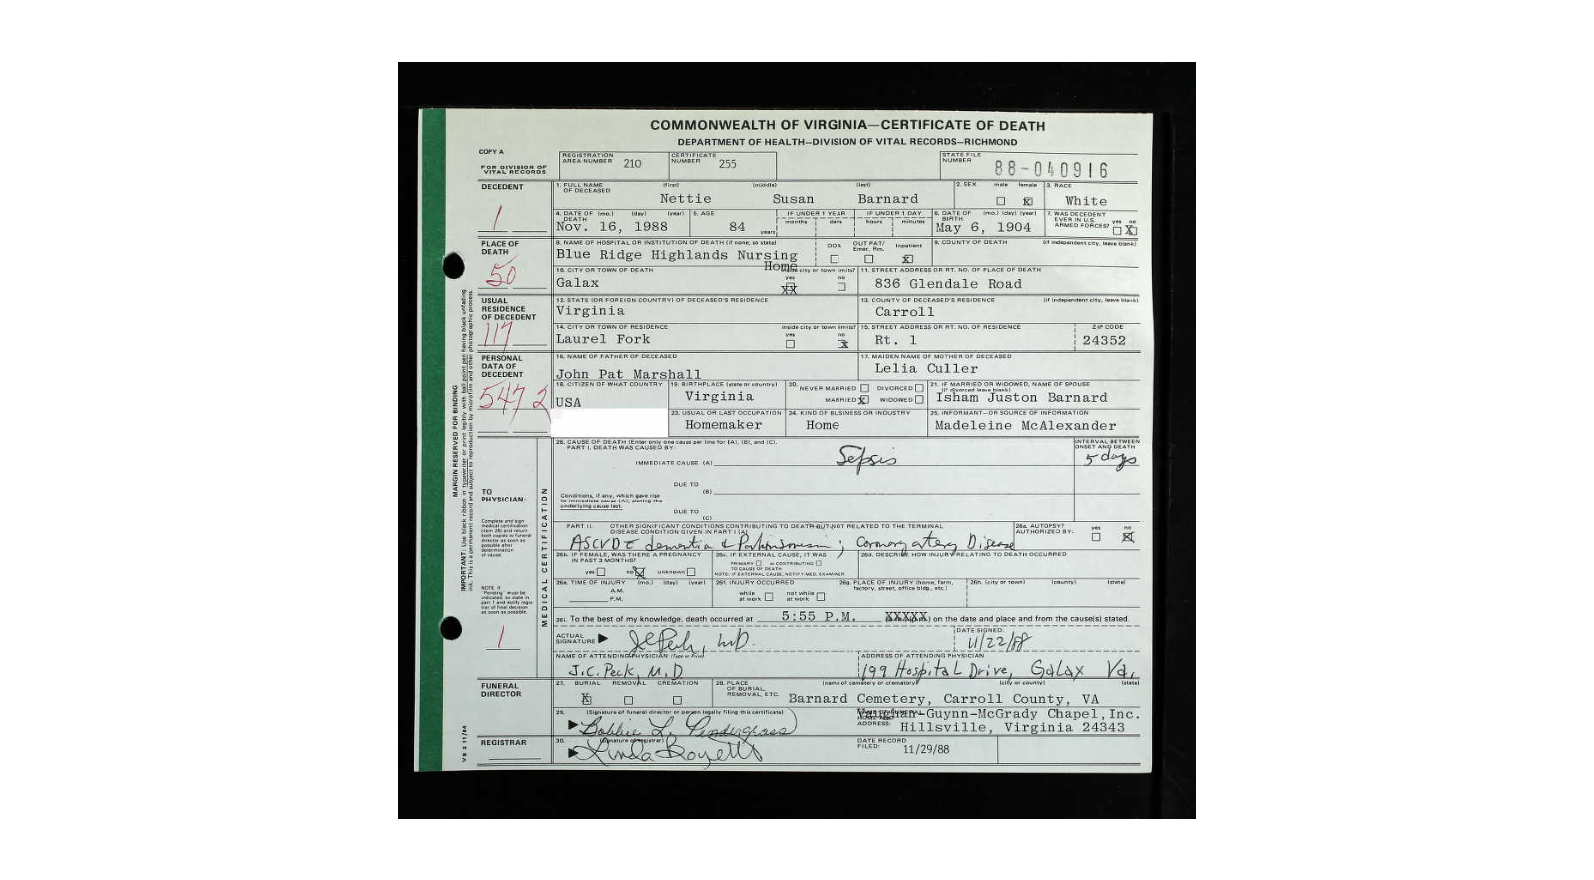 COMMONWEALTH OF VIRGINIA—CERTIFICATE OF DEATH
DEPARTMENT OF HEALTH—DIVISION OF VITAL RECORDS—RICHMOND
COPY A
FOR DIVISION OF VITAL RECORDS
REGISTRATION AREA NUMBER 210
CERTIFICATE NUMBER 255
STATE FILE NUMBER 88-040916
DECEDENT
1
1. FULL NAME OF DECEASED (first) (middle) (last)
Nettie Susan Barnard
2. SEX male female X
3. RACE White
4. DATE OF DEATH (mo.) (day) (year)
Nov. 16, 1988
5. AGE 84 years
IF UNDER 1 YEAR months days
IF UNDER 1 DAY hours minutes
6. DATE OF BIRTH (mo.) (day) (year)
May 6, 1904
7. WAS DECEDENT EVER IN U.S. ARMED FORCES? yes no X
PLACE OF DEATH
50
8. NAME OF HOSPITAL OR INSTITUTION OF DEATH (if none, so state)
Blue Ridge Highlands Nursing Home
DOA OUT PAT/ Emer. Rm. Inpatient X
9. COUNTY OF DEATH (if independent city, leave blank)
10. CITY OR TOWN OF DEATH
Galax
inside city or town limits? yes XX no
11. STREET ADDRESS OR RT. NO. OF PLACE OF DEATH
836 Glendale Road
USUAL RESIDENCE OF DECEDENT
117
12. STATE (OR FOREIGN COUNTRY) OF DECEASED'S RESIDENCE
Virginia
13. COUNTY OF DECEASED'S RESIDENCE (if independent city, leave blank)
Carroll
14. CITY OR TOWN OF RESIDENCE
Laurel Fork
inside city or town limits? yes no X
15. STREET ADDRESS OR RT. NO. OF RESIDENCE
Rt. 1
ZIP CODE
24352
PERSONAL DATA OF DECEDENT
547 2
16. NAME OF FATHER OF DECEASED
John Pat Marshall
17. MAIDEN NAME OF MOTHER OF DECEASED
Lelia Culler
18. CITIZEN OF WHAT COUNTRY
USA
19. BIRTHPLACE (state or country)
Virginia
20. NEVER MARRIED DIVORCED
MARRIED X WIDOWED
21. IF MARRIED OR WIDOWED, NAME OF SPOUSE (if divorced leave blank)
Isham Juston Barnard
23. USUAL OR LAST OCCUPATION
Homemaker
24. KIND OF BUSINESS OR INDUSTRY
Home
25. INFORMANT—OR SOURCE OF INFORMATION
Madeleine McAlexander
MARGIN RESERVED FOR BINDING
MEDICAL CERTIFICATION
TO PHYSICIAN:
Complete and sign medical certification (item 26) and return both copies to funeral director as soon as possible after determination of cause.
NOTE: If "Pending" must be indicated, so state in part 1 and notify registrar of final decision as soon as possible
1
26. CAUSE OF DEATH (Enter only one cause per line for (A), (B), and (C).
PART I. DEATH WAS CAUSED BY:
IMMEDIATE CAUSE (A) Sepsis
INTERVAL BETWEEN ONSET AND DEATH
5 days
DUE TO (B)
Conditions, if any, which gave rise to immediate cause (A), stating the underlying cause last.
DUE TO (C)
PART II. OTHER SIGNIFICANT CONDITIONS CONTRIBUTING TO DEATH BUT NOT RELATED TO THE TERMINAL DISEASE CONDITION GIVEN IN PART I (A)
ASCVD dementia & Parkinsonism; Coronary artery Disease
26a. AUTOPSY? AUTHORIZED BY: yes no X
26b. IF FEMALE, WAS THERE A PREGNANCY IN PAST 3 MONTHS?
yes no X unknown
26c. IF EXTERNAL CAUSE, IT WAS
PRIMARY or CONTRIBUTING
TO CAUSE OF DEATH
NOTE: IF EXTERNAL CAUSE, NOTIFY MED. EXAMINER
26d. DESCRIBE HOW INJURY RELATING TO DEATH OCCURRED
26e. TIME OF INJURY (mo.) (day) (year)
A.M.
P.M.
26f. INJURY OCCURRED
while at work not while at work
26g. PLACE OF INJURY (home, farm, factory, street, office bldg., etc.)
26h. (city or town) (county) (state)
26i. To the best of my knowledge, death occurred at 5:55 P.M. XXXXX on the date and place and from the cause(s) stated.
ACTUAL SIGNATURE JC Peck, MD
DATE SIGNED:
11/22/88
NAME OF ATTENDING PHYSICIAN (Type or Print)
J.C. Peck, M.D
ADDRESS OF ATTENDING PHYSICIAN
199 Hospital Drive, Galax Va.
FUNERAL DIRECTOR
27. BURIAL REMOVAL CREMATION
X
28. PLACE OF BURIAL, REMOVAL, ETC. (name of cemetery or crematory) (city or county) (state)
Barnard Cemetery, Carroll County, VA
29. (Signature of funeral director or person legally filing this certificate)
Bobbie L. Pendergrass
ADDRESS:
Vaughan-Guynn-McGrady Chapel, Inc.
Hillsville, Virginia 24343
REGISTRAR
30. (Signature of registrar)
Linda
DATE RECORD FILED: 11/29/88
VS 2 11/84